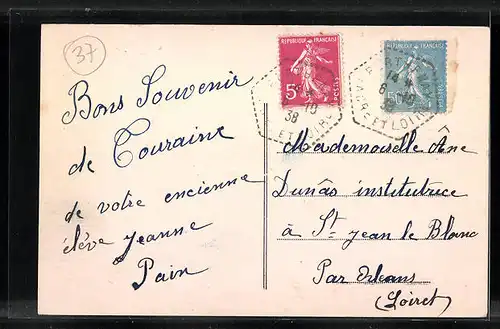 37
Bons Souvenir
de Touraine
de votre encienne
élève Jeanne
Pain
REPUBLIQUE FRANÇAISE
5c
POSTES
REPUBLIQUE FRANÇAISE
10
38
ET LOIRE
6
INDRE ET LOIRE
Mademoiselle Âne
Dunâs institutrice
à St Jean le Blanc
Par Orleans
(Loiret)